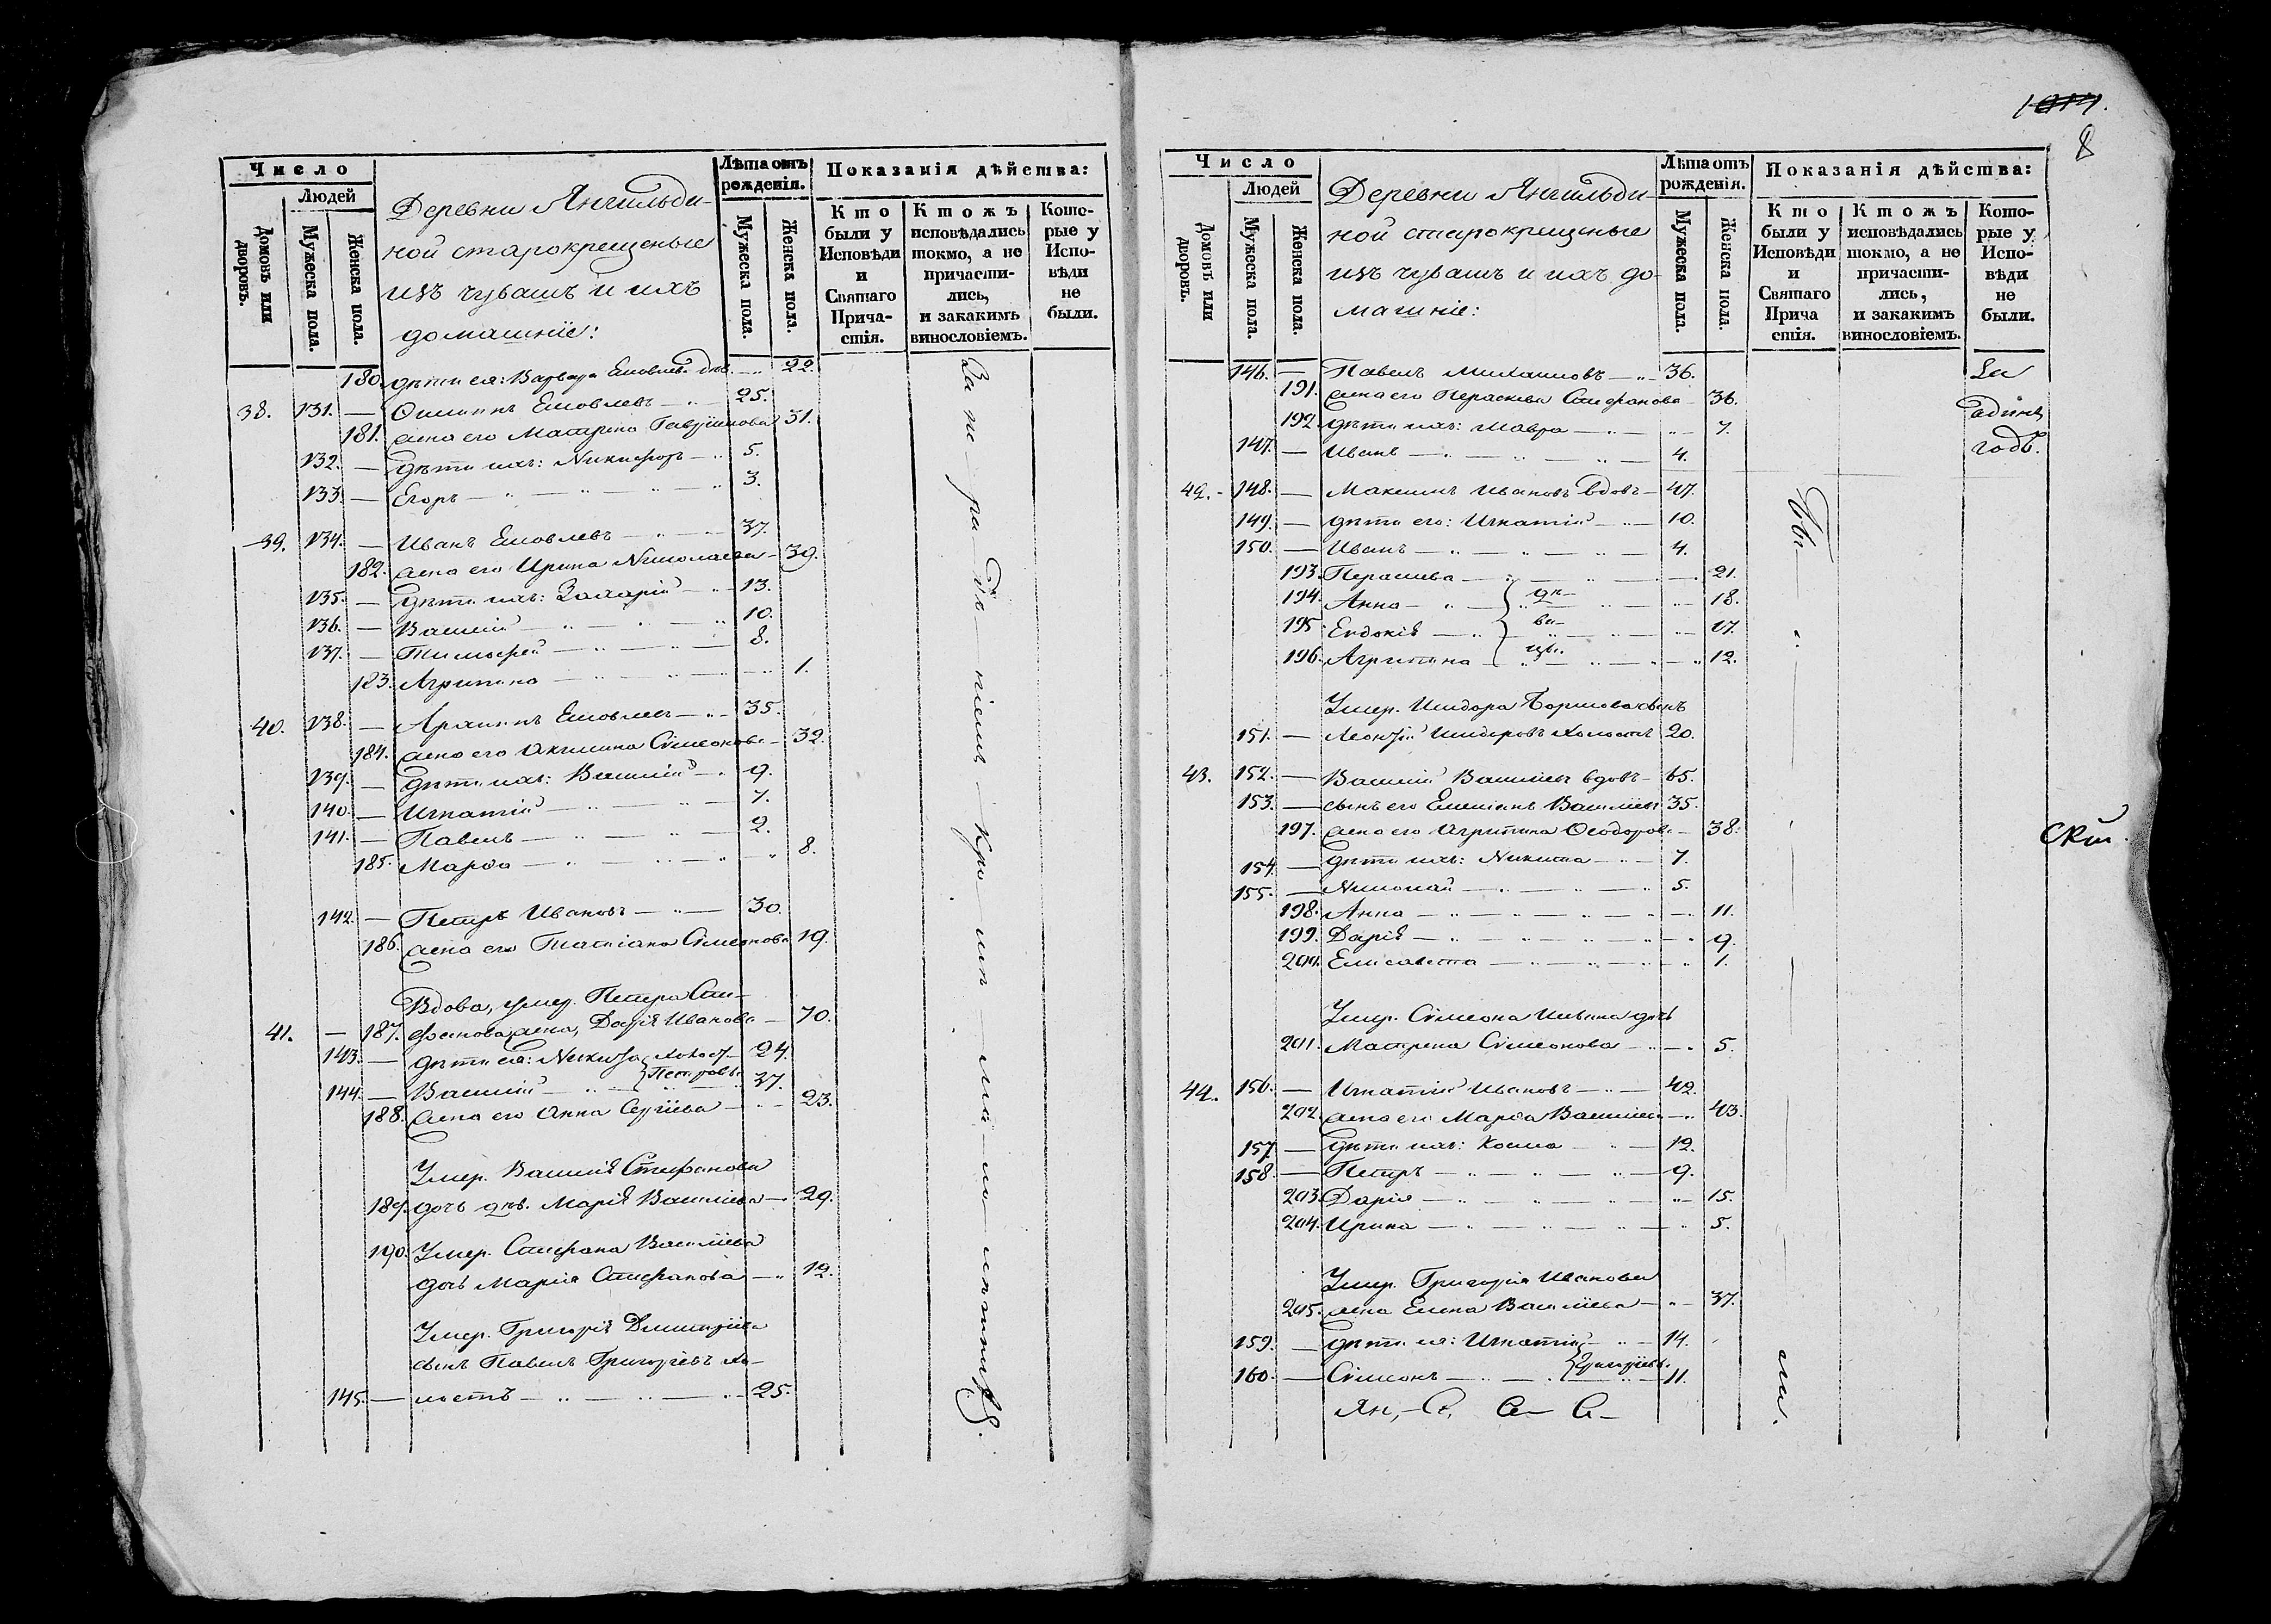 Число
Людей
Домовъ или дворовъ.
Мужеска пола.
Женска пола.
Деревни Янгильди-
ной старокрещеные
изъ чувашъ и ихъ
домашніе:
Лѣта отъ рожденія.
Мужеска пола.
Женска пола.
Показанія дѣйства:
Кто были у Исповѣди и Святаго Прича-стія.
Ктожъ исповѣдались токмо, а не причасти-лись, и закакимъ винословіемъ.
Кото-рые у Испо-вѣди не были.
180. дѣти ея: Варвара 22.
38. 131. — Яковлевъ — 25.
181. жена его Матрена 31.
132. — дѣти ихъ: Никифоръ — 5.
133. — Егоръ — 3.
39. 134. — Иванъ Яковлевъ — 37.
182. жена его Ирина Николаева — 39.
135. — дѣти ихъ: Захарій — 13.
136. — Василій — 10.
137. — Тимофей — 8.
183. Агрипина — 1.
40. 138. — Архипъ Яковлевъ — 35.
184. жена его Акилина Сѵмеонова — 32.
139. — дѣти ихъ: Василій — 9.
140. — Игнатій — 7.
141. — Павелъ — 2.
185. Марѳа — 8.
142. — Петръ Ивановъ — 30.
186. жена его Татіана Сѵмеонова 19.
Вдова, умер. Петра Сте-
41. — 187. фанова жена, Дарія Иванова — 70.
143. — дѣти ея: Никита холост 24.
144. — Василій — Петровы 37.
188. жена его Анна Сергіева — 23.
Умер. Василія Стефанова
189. дочь дѣв. Марія Василіева — 29.
190. Умер. Стефана Василіева
дочь Марія Стефанова — 12.
Умер. Григорія Димитріева
сынъ Павелъ Григорьевъ хо-
145. — лостъ — 25.
За не-ра-дѣ-ніемъ
1014.
8
Число
Людей
Домовъ или дворовъ.
Мужеска пола.
Женска пола.
Деревни Янгильди-
ной старокрещеные
изъ чувашъ и ихъ до-
машніе:
Лѣта отъ рожденія.
Мужеска пола.
Женска пола.
Показанія дѣйства:
Кто были у Исповѣди и Святаго Прича стія.
Ктожъ исповѣдались токмо, а не причасти-лись, и закакимъ винословіемъ.
Кото-рые у Испо-вѣди не были.
146. — Павелъ Михаиловъ — 36.
191. жена его Параскева Стефанова 36.
192. дѣти ихъ: Мавра — 7.
147. — Иванъ — 4.
одинъ
годъ.
42. 148. — Максимъ Ивановъ вдовъ — 47.
149. — дѣти его: Игнатій — 10.
150. — Иванъ — 4.
193. Параскева — 21.
194. Анна — 18.
195. Евдокія — 17.
196. Агрипина — 12.
дѣ-
ви-
цы.
Бы
Умер. Исидора Борисова сынъ
151. — Леонтій Исидоровъ холостъ 20.
43. 152. — Василій Василіевъ вдовъ — 65.
153. — сынъ его Емеліанъ Василіевъ 35.
197. жена его Агрипина Ѳеодорова — 38.
154. — дѣти ихъ: Никита — 7.
155. — Николай — 5.
198. Анна — 11.
199. Дарія — 9.
200. Елисавета — 1.
Умер. Сѵмеона дочь
201. Матрена Сѵмеонова — 5.
44. 156. — Игнатій Ивановъ — 42.
202. жена его Марѳа Василіева — 43.
157. — дѣти ихъ: Косма — 12.
158. — Петръ — 9.
203. Дарія — 15.
204. Ирина — 5.
Умер. Григорія Иванова
205. жена Елена Василіева — 37.
159. — дѣти ея: Игнатій — 14.
160. — Сѵмеонъ — Григорьевы. 11.
ли.